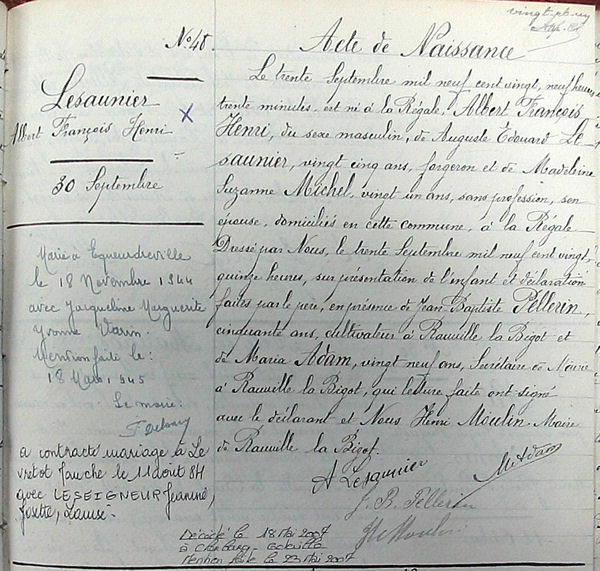 No. 48
Lesaunier
Albert François Henri
30 Septembre
Marié à Equeurdreville
le 18 Novembre 1944
avec Jacqueline Marguerite
Yvonne
Mention faite le:
18 1945
Le maire:
a contracté mariage à Le
Vretot Manche le 11 août 84
avec LESEIGNEUR Jeanine,
Josette, Louise.
Acte de Naissance
Le trente Septembre mil neuf cent vingt, neuf heures
trente minutes, est né à la Régale, Albert François
Henri, du sexe masculin, de Auguste Edouard Le
saunier, vingt cinq ans, forgeron et de Madeleine
Suzanne Michel, vingt un ans, sans profession, son
épouse, domiciliés en cette commune, à la Régale
Dressé par Nous, le trente Septembre mil neuf cent vingt,
quinze heures, sur présentation de l'enfant et déclaration
faites par le père, en présence de Jean Baptiste Pellerin,
cinquante ans, cultivateur à Rauville la Bigot et
de Maria Adam, vingt neuf ans, Secrétaire de Mairie
à Rauville la Bigot, qui lecture faite ont signé
avec le déclarant et Nous Henri Moulin Maire
de Rauville la Bigot.
A Lesaunier
M. Adam
J. B. Pellerin
H. Moulin
Décédé le 18 Mai 2007
à Cherbourg-Octeville
Mention faite le 23 Mai 2007